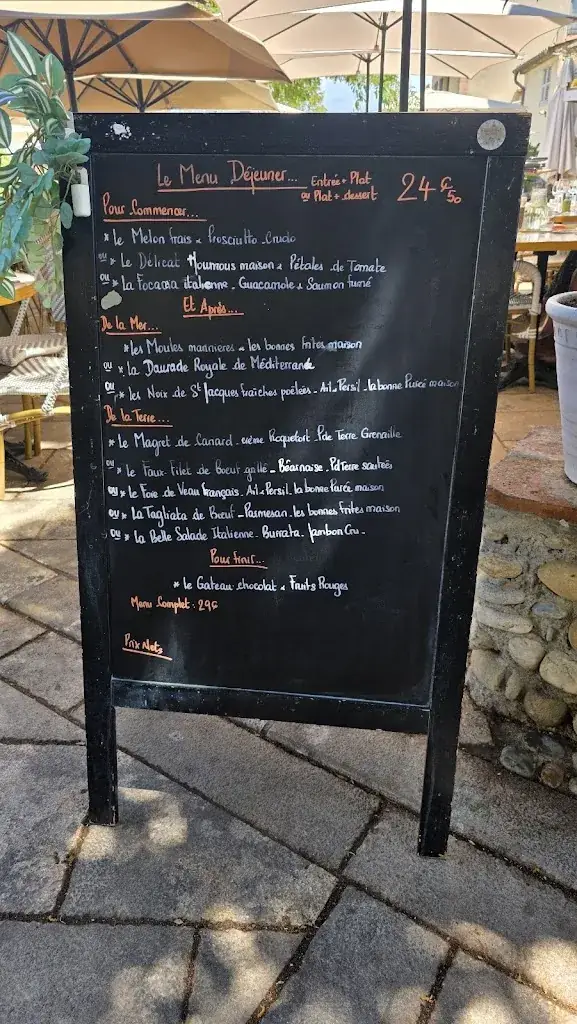 Le Menu Déjeuner... Entrée + Plat
ou Plat + dessert
24€50
Pour Commencer...
* le Melon frais & Prosciutto Crudo
ou * Le Délicat Houmous maison & Pétales de Tomate
ou * la Focacia italienne - Guacamole & Saumon fumé
Et Après...
De la Mer...
* les Moules marinieres & les bonnes frites maison
ou * La Daurade Royale de Méditerranée
ou * les Noix de St Jacques fraîches poêlées - Ail & Persil - la bonne Purée maison
De la Terre...
* Le Magret de Canard - crème Roquefort P de Terre Grenaille
ou * le Faux-Filet de Boeuf grillé - Béarnaise - P d Terre sautées
ou * le Foie de Veau français - Ail & Persil - la bonne Purée maison
ou * La Tagliata de Bœuf - Parmesan - les bonnes frites maison
ou * la Belle Salade Italienne - Burrata - Jambon Cru -
Pour finir...
* le Gateau chocolat & Fruits Rouges
Menu Complet : 29€
Prix Nets